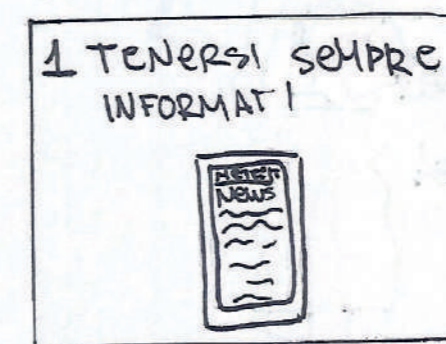 1 TENERSI SEMPRE
INFORMATI
News